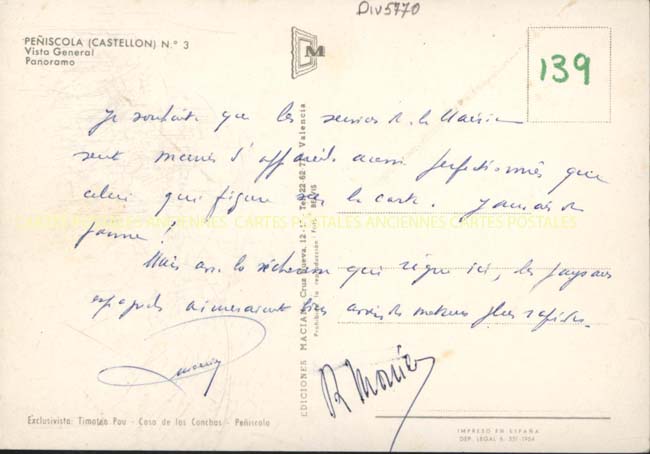 Div5770
PEÑISCOLA (CASTELLON) N.° 3
Vista General
Panoramo
M
139
Je souhaite que les services de la Mairie
sont munis d'appareils aussi perfectionnés que
celui qui figure sur la carte. Jamais de
panne!
Mais avec la sécheresse qui règne ici, les paysans
espagnols aimeraient bien avoir des moteurs plus rapides.
R Monier
EDICIONES MACIAN Cruz Nueva, 12 Tel. 22 62 77 Valencia
Prohibida la reproducción
CARTES POSTALES ANCIENNES CARTES POSTALES ANCIENNES CARTES POSTALES
Exclusivista: Timoteo Pau - Casa de las Conchas - Peñiscola
IMPRESO EN ESPAÑA
DEP. LEGAL B. 331-1964